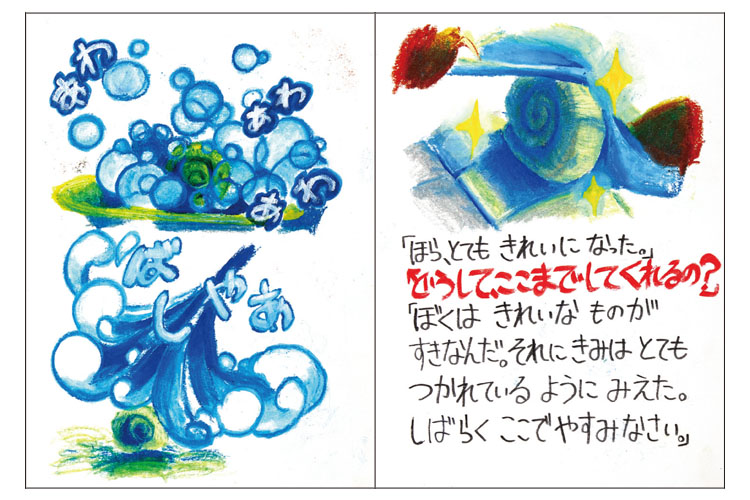 あわ
あわ
あわ
ばしゃあ
「ほら、とても きれいに なった。」
「どうして、ここまでしてくれるの?
「ぼくは きれいな ものが
すきなんだ。それに きみは とても
つかれている ように みえた。
しばらく ここで やすみなさい。」